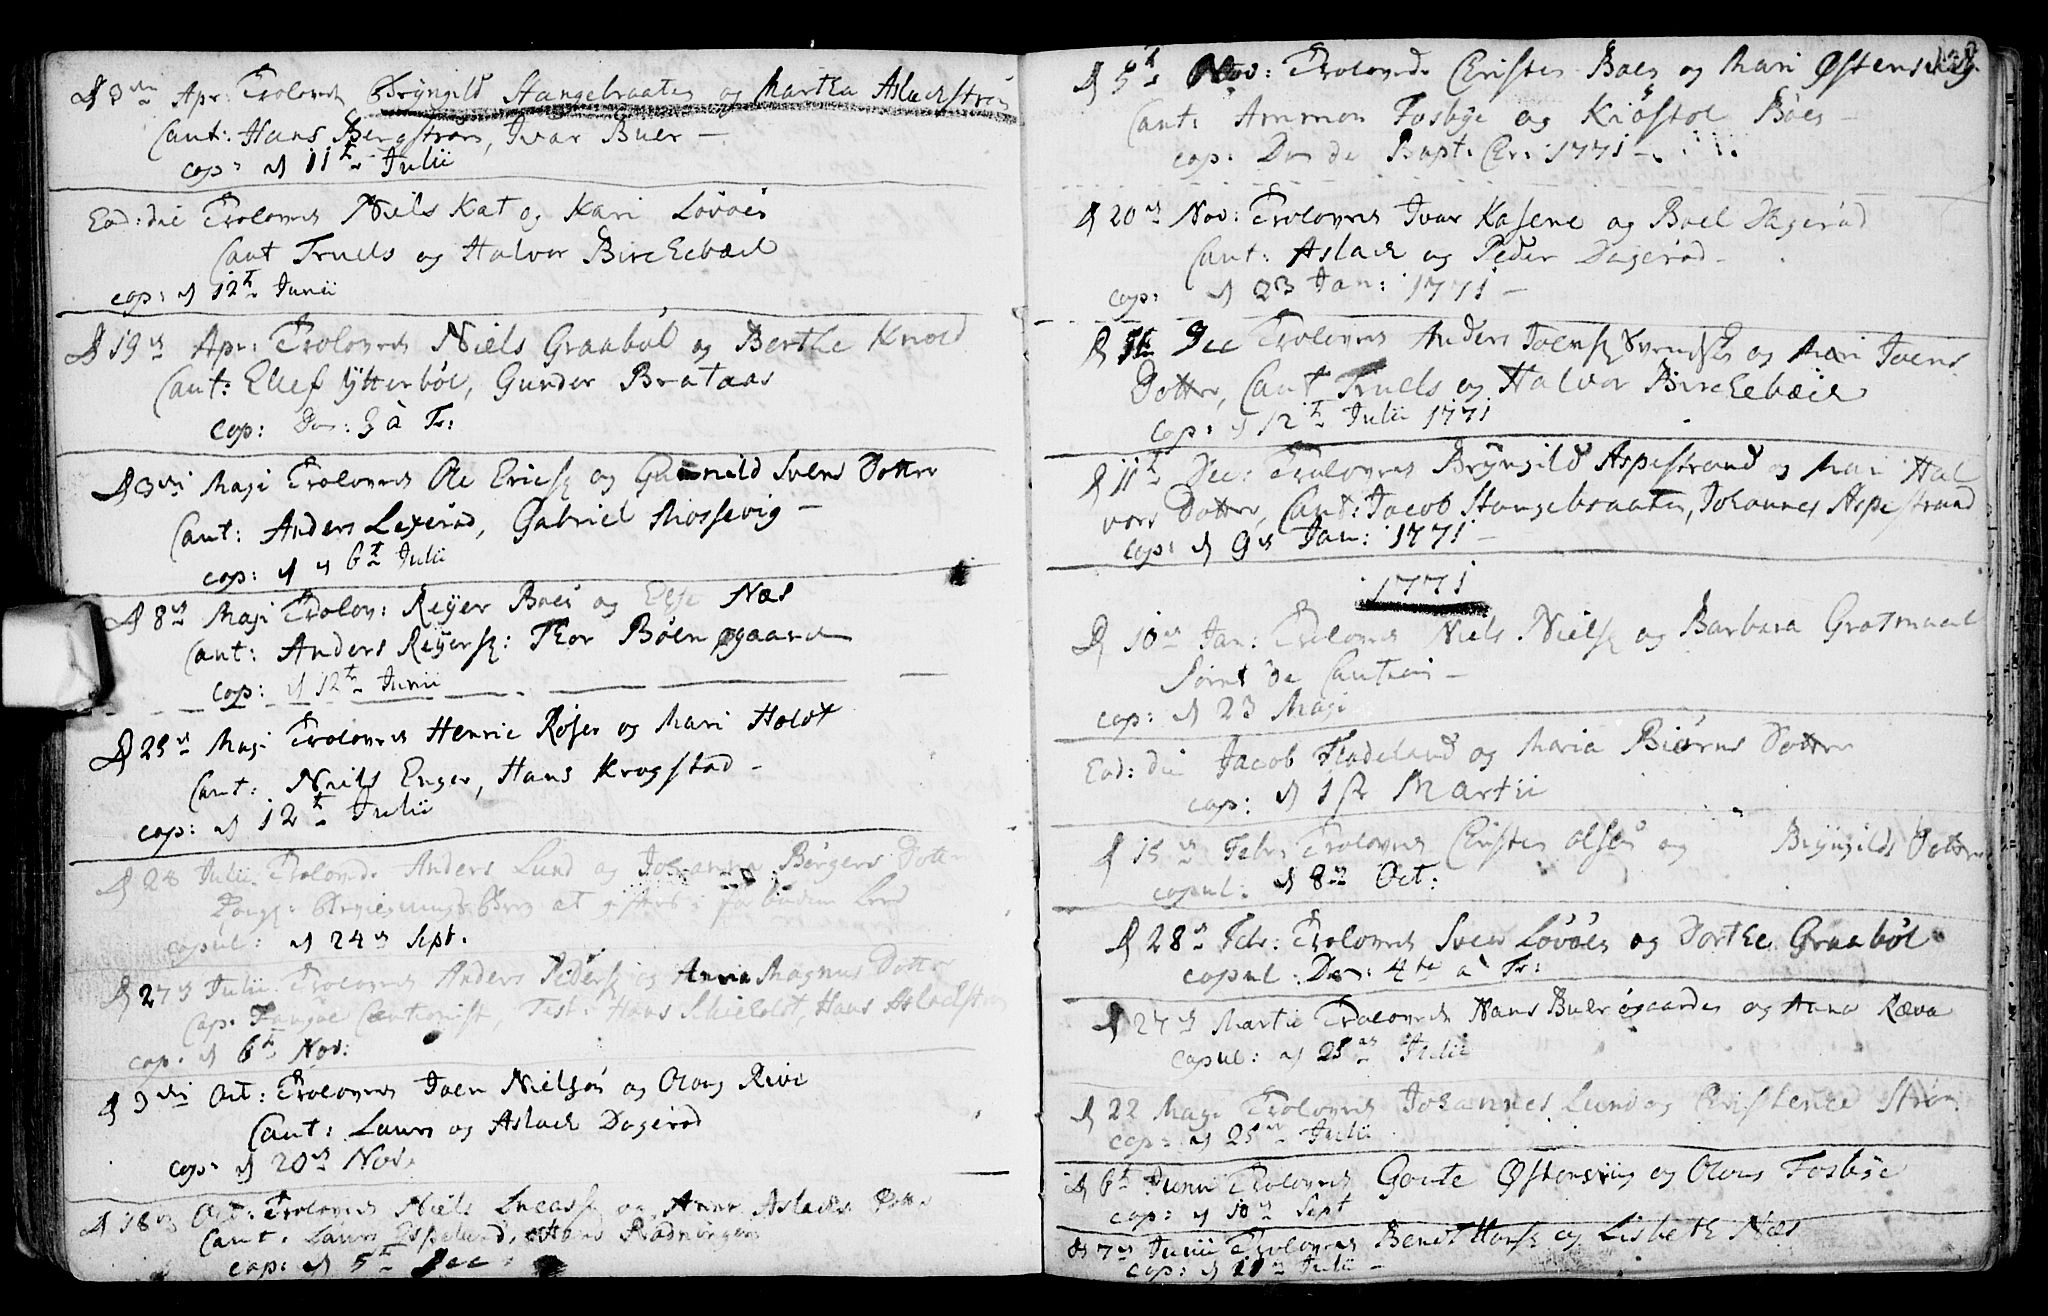 D 3die Apr: Trolovede Bryngild Stangebraaten og Martha Aslackstrøm
Caut: Hans Bergstrøm, Ivar Buer –
cop: d 11t Julii
Eod: die Trolovede Niels Kat og Kari Lövöes
Caut Truels og Halvor Birckebæck
cop: d 12t Junii
D 19de Apr: Trolovede Niels Graabøl og Berthe Knold
Caut: Ellef Ytterböl, Gunder Brataas
cop: Do: 3 à Tr:
D 3die Maji Trolovede Ole Erics: og Gunnild Svens Dotter
Caut: Anders Lexeröd, Gabriel Mossevig –
cop: d 6t Julii
D 8de Maji Trolov: Reyer Boes og Else Næs
Caut: Anders Reyers: Thor Böensgaard
cop: d 12t Junii
D 25de Maji Trolovede Henric Röser og Mari Holdt
Caut: Niels Enger, Hans Krogstad –
cop: d 12t Julii
D 28 Julii Trolovede Anders Lund og Johanna Börgers Dotter
capul: d 24de Sept.
D 27de Julii Trolovede Anders Peders: og Anna Magnus Dotter
Cap: Cautionist, Test: Hans Skieldt, Hans Aslackstrøm
cop: d 6t Nov:
D 3die Oct: Trolovede Joen Nielsön og Oloug Rive
Caut: Laurs og Aslack Dageröd
cop: d 20de Nov.
D 18de Oct: Trolovede Niels Lucass: og Anne Aslacks Dotter
Caut: Laurs Espelund, Hans Rödningen
cop: d 5t Dec:
D 5t Nov: Trolovede Christen Boes og Mari Østensvig
Caut: Ammon Fosbye og Kiöstol Böes –
cop: Do de Bapt: Chr: 1771 –
D 20de Nov: Trolovede Ivar Kasene og Boel Dageröd
Caut: Aslack og Peder Dageröd –
cop: d 23 Jan: 1771 –
D Dec Trolovede Anders Joens: Svends: og Mari Joens
Dotter, Caut Truels og Halvor Birckebæck
cop: d 12t Julii 1771
D 11t Dec: Trolovede Bryngild Aspestrand og Mari Hal
vors Dotter, Caut: Jacob Stangebraaten, Johannes Aspestrand
cop: d 9de Jan: 1771 –
1771
D 10de Jan: Trolovede Niels Niels: og Barbara Grotmaal
Sornt de Caution –
cop: d 23 Maji
Eod: die Jacob Fladeland og Maria Biörns Dotter
cop: d 1ste Martii
D 15de Febr: Trolovede Christen Olsön og Bryngilds Dotter
copul: d 8de Oct:
D 28de Febr: Trolovede Sven Lövöes og Dorthe Graaböl
copul: Do: 4te à Tr:
D 27de Martii Trolovede Hans Buersgaarden og Anna Ræva
copul: d 25de Julii
D 22 Maji Trolovede Johannes Lund og Christence Strøm
cop: d 25de Julii
D 6t Junii Trolovede Goute Østensvig og Oloug Fosbye
cop: d 10de Sept
D 7de Junii Trolovede Bendt Hans: og Lisbeth Næs
cop: d 11 Julii –